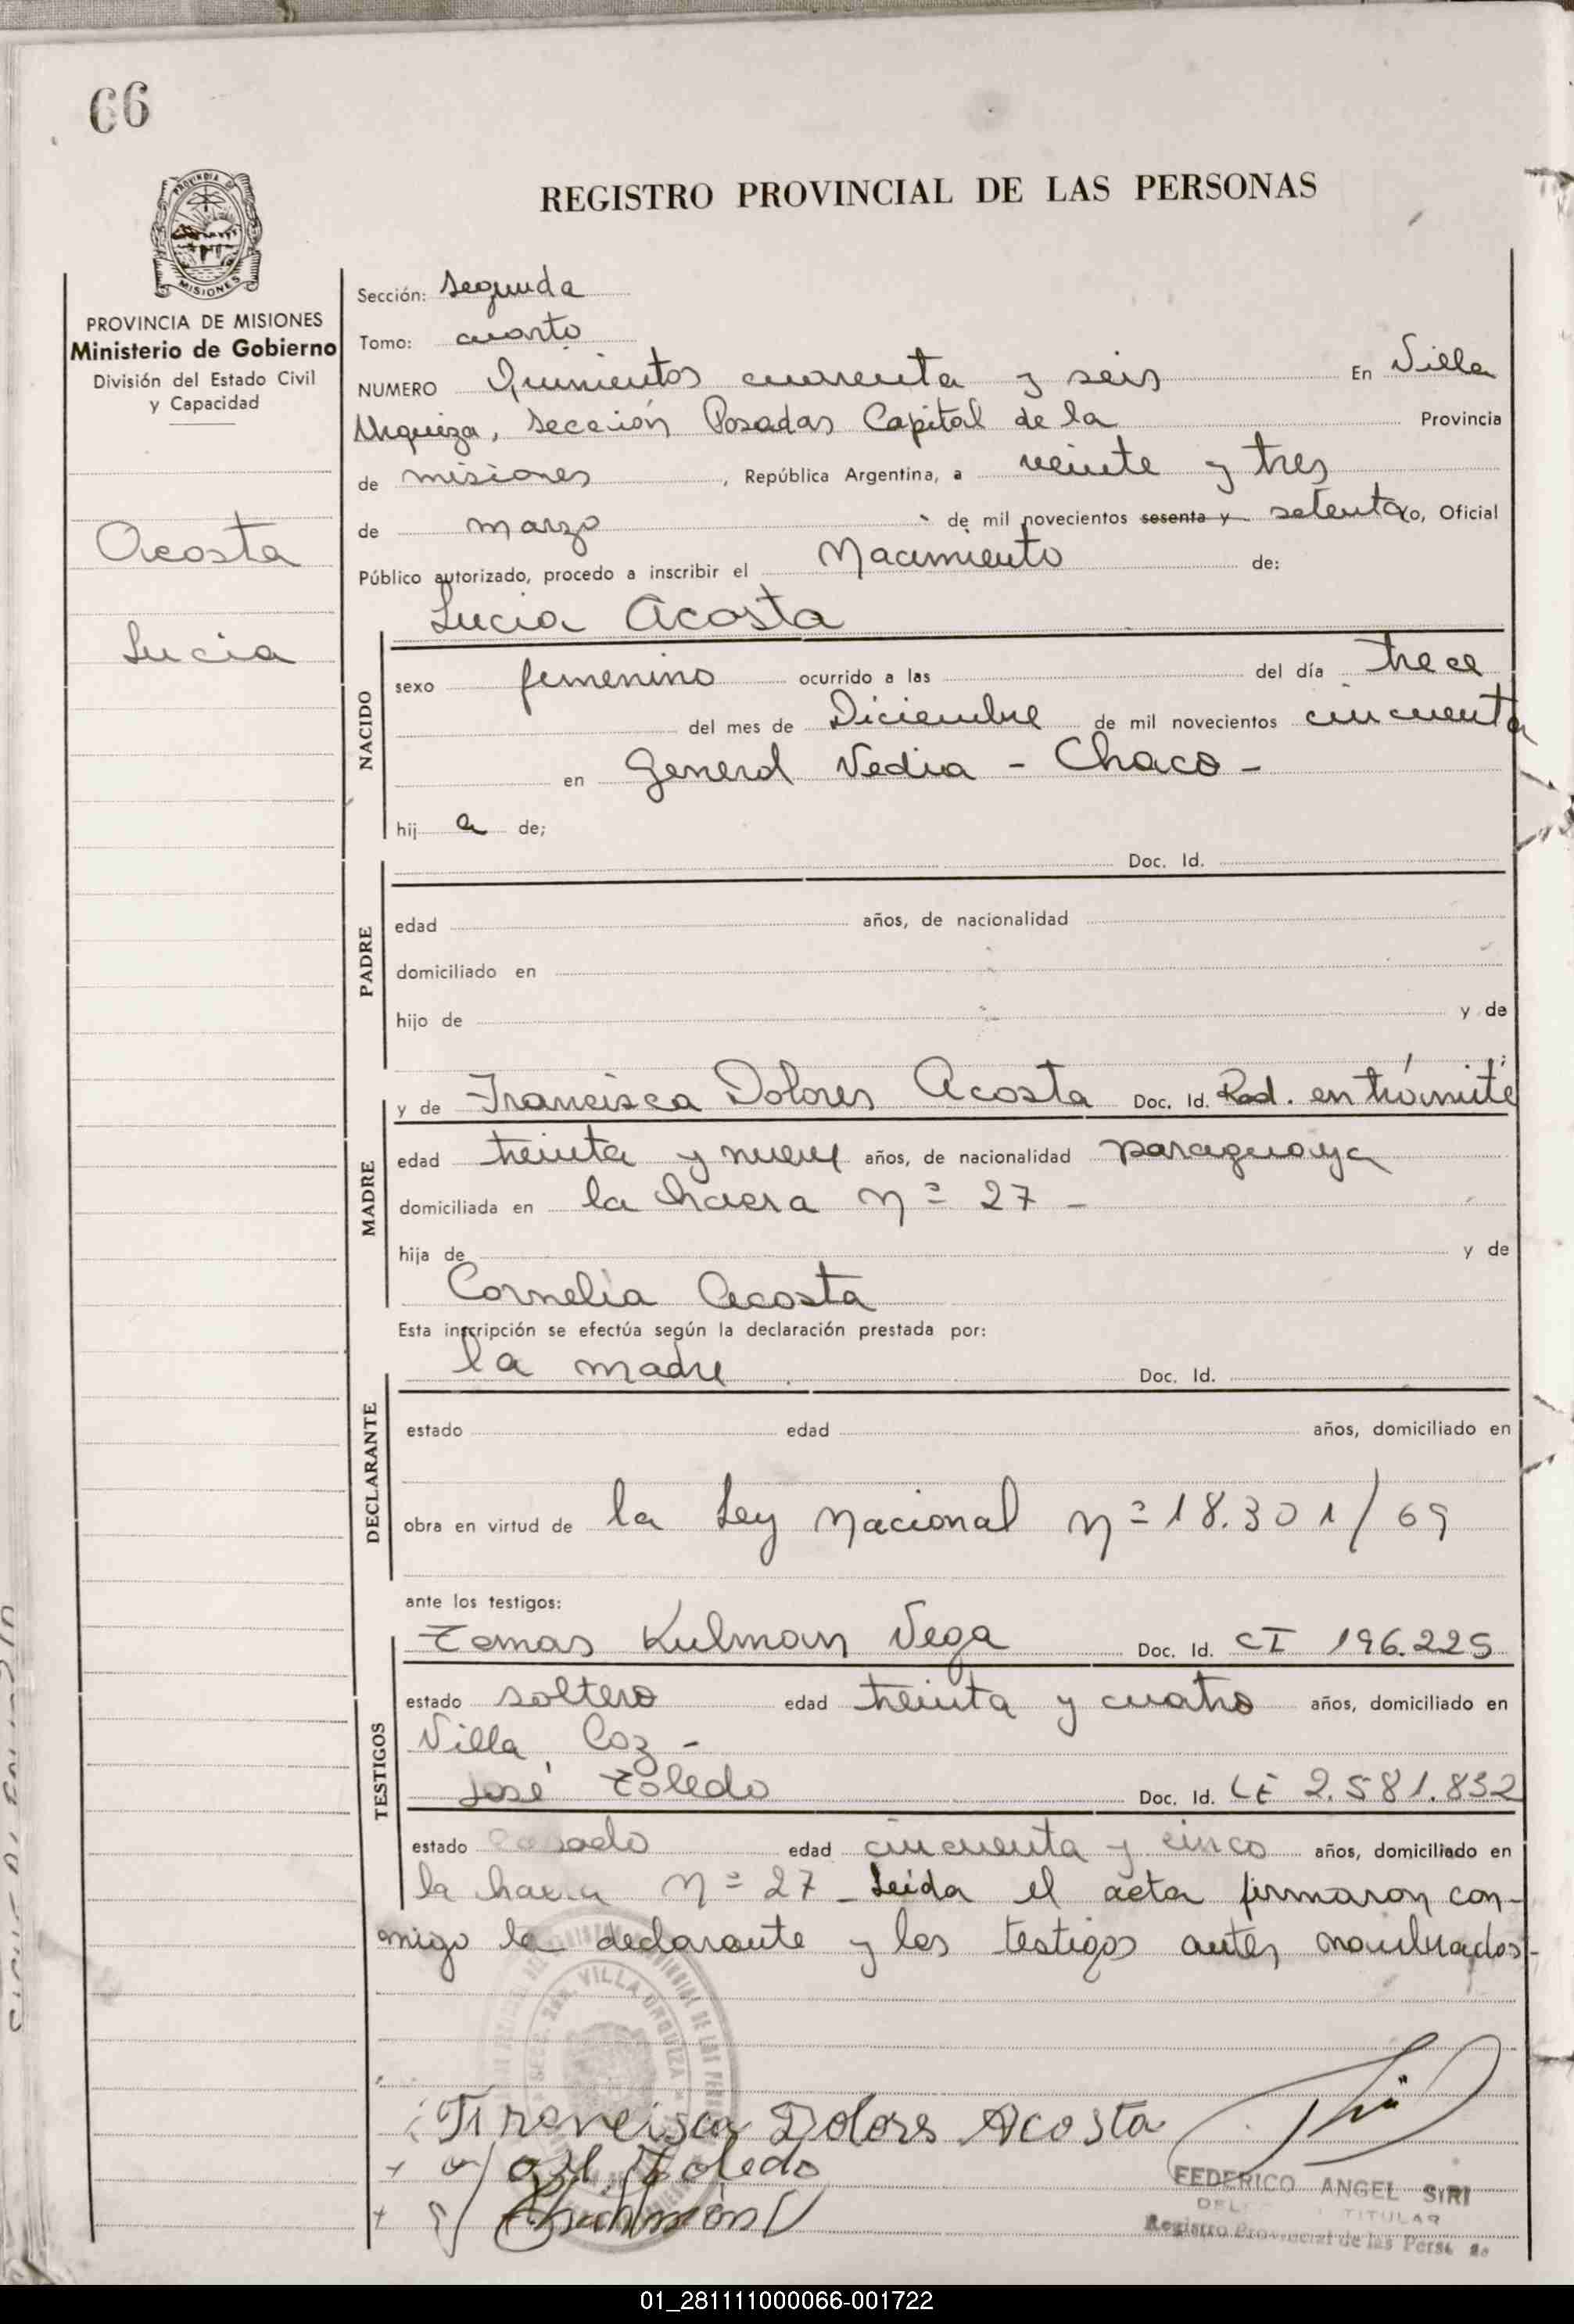 66
PROVINCIA DE MISIONES
REGISTRO PROVINCIAL DE LAS PERSONAS
PROVINCIA DE MISIONES
Ministerio de Gobierno
División del Estado Civil
y Capacidad
Acosta
Lucia
Sección: segunda
Tomo: cuarto
NUMERO Quinientos cuarenta y seis En Villa
Urquiza, sección Posadas Capital de la Provincia
de misiones, República Argentina, a veinte y tres
de marzo de mil novecientos sesenta y setenta yo, Oficial
Público autorizado, procedo a inscribir el Nacimiento de:
Lucia Acosta
NACIDO
sexo femenino ocurrido a las del día trece
del mes de Diciembre de mil novecientos cincuenta
en General Vedia - Chaco -
hij a de;
PADRE
Doc. Id.
edad años, de nacionalidad
domiciliado en
hijo de y de
;
MADRE
y de Francisca Dolores Acosta Doc. Id. Rad. en trámite
edad treinta y nueve años, de nacionalidad paraguaya
domiciliada en la chacra Nº 27 -
hija de y de
Cornelia Acosta
Esta inscripción se efectúa según la declaración prestada por:
DECLARANTE
la madre Doc. Id.
estado edad años, domiciliado en
obra en virtud de la Ley Nacional Nº 18.301/69
ante los testigos:
TESTIGOS
Tomas Kulman Vega Doc. Id. CI 196.225
estado soltero edad treinta y cuatro años, domiciliado en
Villa Coz -
José Toledo Doc. Id. LE 2.581.832
estado casado edad cincuenta y cinco años, domiciliado en
la chacra Nº 27 - Leida el acta firmaron con-
migo la declarante y los testigos antes nombrados-
VILLA URQUIZA
Francisca Dolors Acosta
Toledo
FEDERICO ANGEL SIRI
TITULAR
Registro Provincial de las Perso
01_281111000066-001722